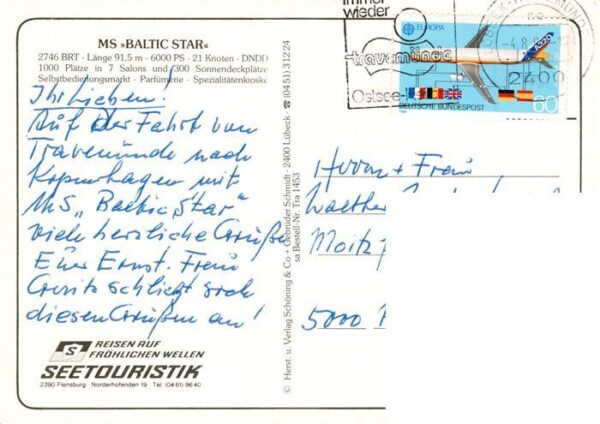 MS »BALTIC STAR«
2746 BRT - Länge 91.5 m - 6000 PS - 21 Knoten - DNDD
1000 Plätze in 7 Salons und 300 Sonnendeckplätze
Selbstbedienungsmarkt - Parfümerie - Spezialitätenkioske
Ihr Lieben!
Auf der Fahrt von
Travemünde nach
Kopenhagen mit
M.S. „Baltic Star"
viele herzliche Grüße
Euer Ernst. Frau
schließt sich
diesen Grüßen an!
S REISEN AUF
FRÖHLICHEN WELLEN
SEETOURISTIK
2390 Flensburg Norderhofenden 19 Tel. (04 61) 86 40
© Herst. u. Verlag Schöning & Co + Gebrüder Schmidt · 2400 Lübeck · ☎ (04 51) 3 12 24
sa Bestell-Nr. Tra 1453
immer
wieder
travemünde
Ostsee
2400
EUROPA
A320
DEUTSCHE BUNDESPOST
60
Herrn + Frau
Walther
Moitz
5000